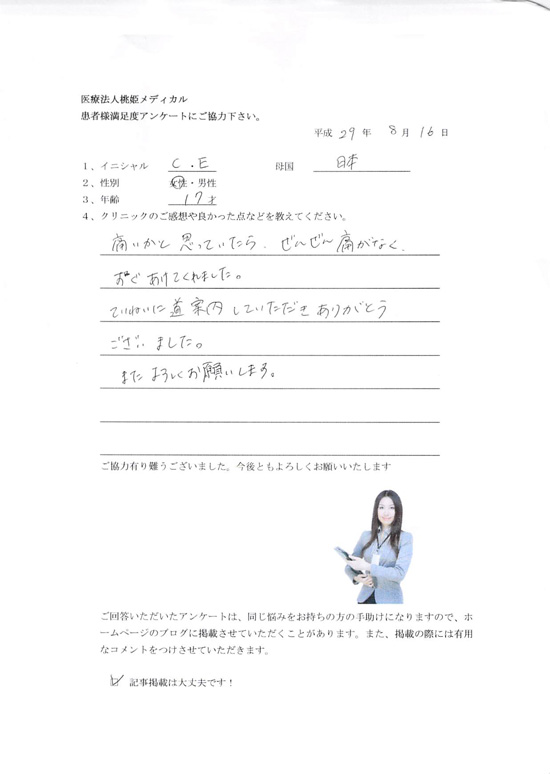 医療法人桃姫メディカル
患者様満足度アンケートにご協力下さい。
平成 29 年 8 月 16 日
1、イニシャル C.E 母国 日本
2、性別 女性・男性
3、年齢 17才
4、クリニックのご感想や良かった点などを教えてください。
痛いかと思っていたら、ぜんぜん痛がなく、
あけてくれました。
ていねいに道案内していただきありがとう
ございました。
またよろしくお願いします。
ご協力有り難うございました。今後ともよろしくお願いいたします
ご回答いただいたアンケートは、同じ悩みをお持ちの方の手助けになりますので、ホ
ームページのブログに掲載させていただくことがあります。また、掲載の際には有用
なコメントをつけさせていただきます。
記事掲載は大丈夫です!